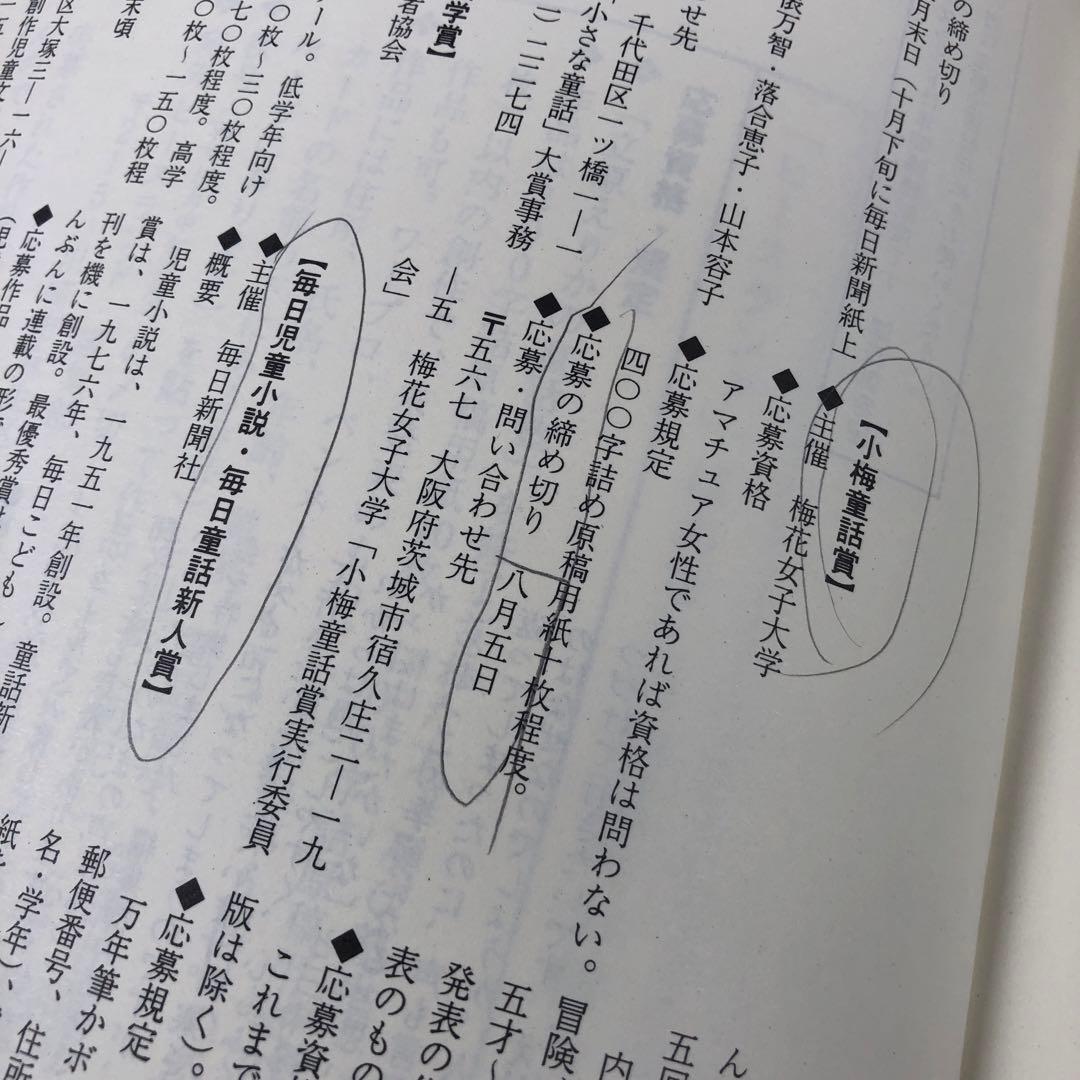 の締め切り
月末日（十月下旬に毎日新聞紙上
俵万智・落合恵子・山本容子
せ先
千代田区一ッ橋一―一
小さな童話」大賞事務
）二二七四
学賞】
者協会
ール。低学年向け
〇枚〜三〇枚程度。
七〇枚程度。高学
〇枚〜一五〇枚程
末頃
区大塚三―一六―
創作児童文
【小梅童話賞】
◆主催　梅花女子大学
◆応募資格
アマチュア女性であれば資格は問わない。
◆応募規定
四〇〇字詰め原稿用紙十枚程度。
◆応募の締め切り　八月五日
◆応募・問い合わせ先
〒五六七　大阪府茨城市宿久庄二―一九
―五　梅花女子大学「小梅童話賞実行委員
会」
【毎日児童小説・毎日童話新人賞】
◆主催　毎日新聞社
◆概要
児童小説は、一九五一年創設。童話新
賞は、一九七六年、毎日こどもし
刊を機に創設。最優秀賞は
んぶんに連載の形で
◆応募作品
ん
五回
内
冒険
五才〜
発表の
表のもの
◆応募資
これまで
版は除く）。
◆応募規定
万年筆かボ
郵便番号、住所
名・学年）、